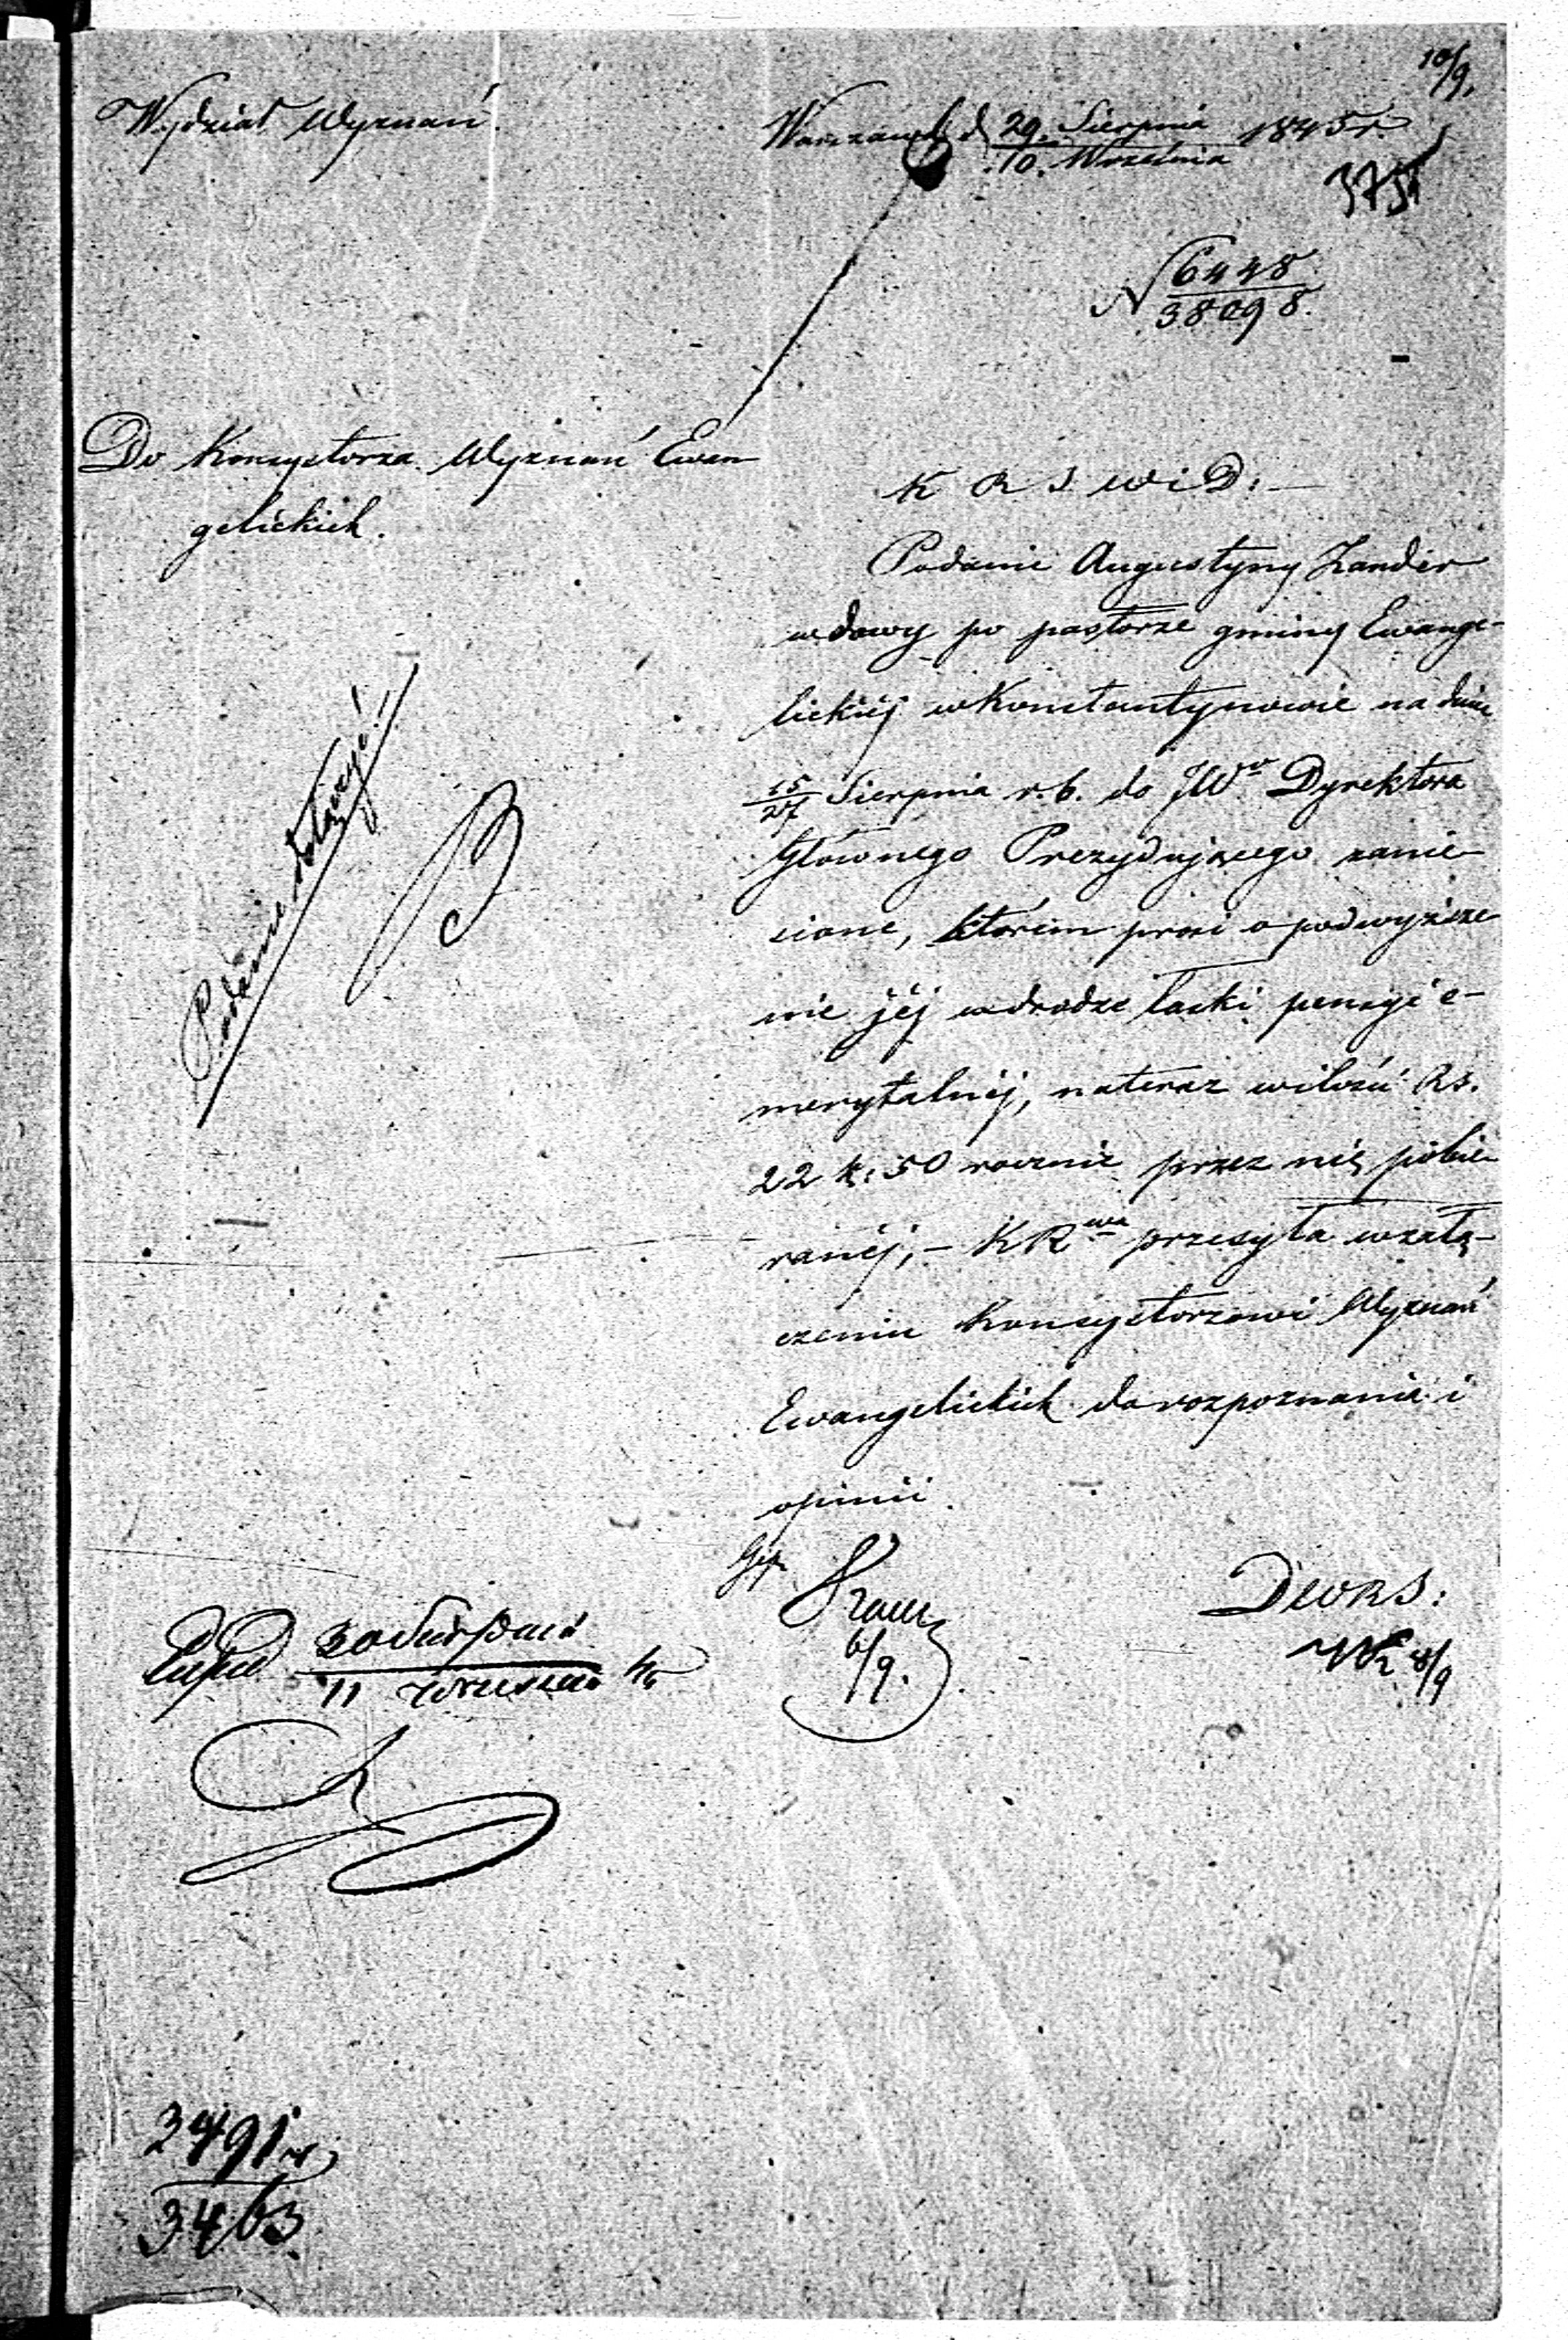 10/9.
Wydział Wyznań.
Warszawa d 29. Sierpnia / 10. Września 1845 r.
375
N 6448 / 38098.
Do Konsystorza Wyznań Ewan
gelickich.
K R S W i D: —
Podanie Augustyny Zander
wdowy po pastorze gminy Ewange-
lickiéj w Konstantynowie na dniu
15/27 Sierpnia r. b. do JWo Dyrektora
Głównego Prezydującego zanie
sione, którém prosi o podwyższe
nie jéj w drodze łaski pensyi e-
merytalnéj, nateraz w ilości Rs.
22 k: 50 rocznie przez nią pobie
ranéj, — KRwa przesyła w załą-
czeniu Konsystorzowi Wyznań
Ewangelickich do rozpoznania i
opinii.
Podanie dołączyć.
6/9.
DWRS:
8/9
30 Sierpnia / 11 Września
3491 / 3463